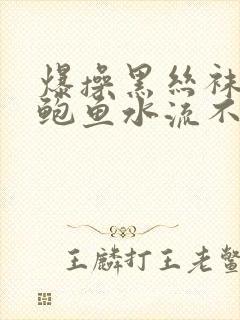 爆操黑丝袜
鲍鱼水流不
王麟打王老鳖